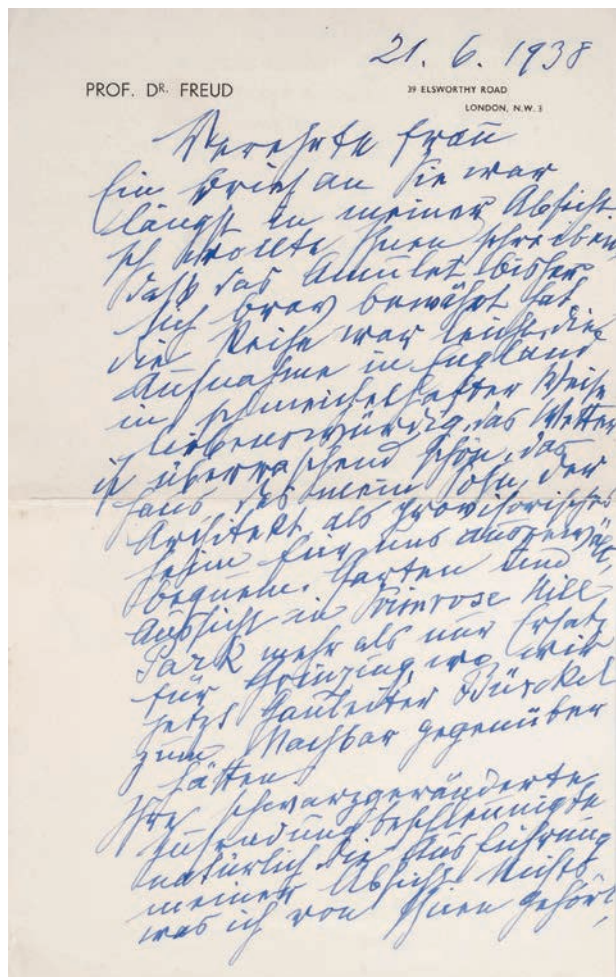 21. 6. 1938
PROF. DR. FREUD
39 ELSWORTHY ROAD
LONDON, N.W. 3
Verehrte Frau
Ein Brief an Sie war
längst in meiner Absicht
Ich wollte Ihnen schreiben,
daß das Amulet bisher
sich brav bewährt hat
die Reise war leicht, die
Aufnahme in England
in schmeichelhafter Weise
liebenswürdig, das Wetter
ist überraschend schön, das
Haus, das mein Sohn, der
Architekt, als provisorisches
Heim für uns ausgewählt,
bequem. Garten und
Aussicht in Primrose Hill
Park mehr als nur Ersatz
für Grinzing, wo wir
jetzt Gauleiter Bürckel
zum Nachbar gegenüber
hätten.
Ihre schwarzgeränderte
beschleunigte
natürlich die Ausführung
meiner Absicht. Nichts
was ich von Ihnen gehört,